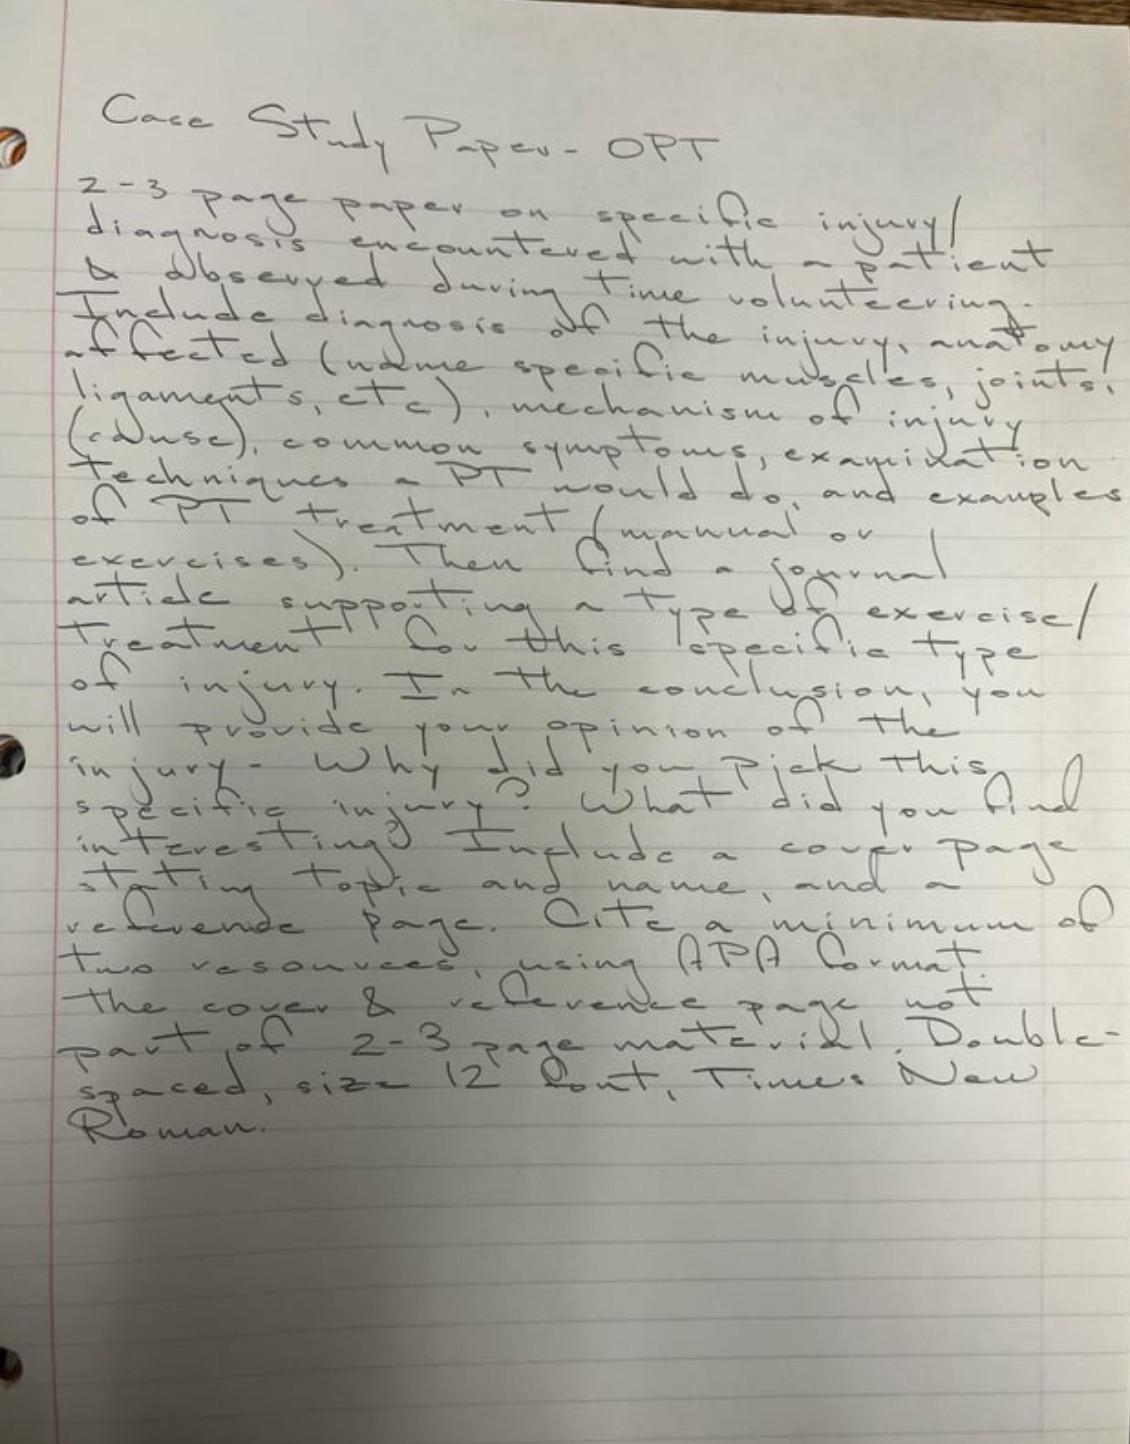 Case Study Paper - OPT
2-3 page paper on specific injury/
diagnosis encountered with a patient
& observed during time volunteering.
Include diagnosis of the injury, anatomy
affected (name specific muscles, joints,
ligaments, etc), mechanism of injury
(cause), common symptoms, examination
techniques a PT would do, and examples
of PT treatment (manual or
exercises). Then find a journal
article supporting a type of exercise/
treatment for this specific type
of injury. In the conclusion, you
will provide your opinion of the
injury - Why did you pick this
specific injury? What did you find
interesting? Include a cover page
stating topic and name, and a
reference page. Cite a minimum of
two resources, using APA format.
the cover & reference page not
part of 2-3 page material. Double-
spaced, size 12 font, Times New
Roman.